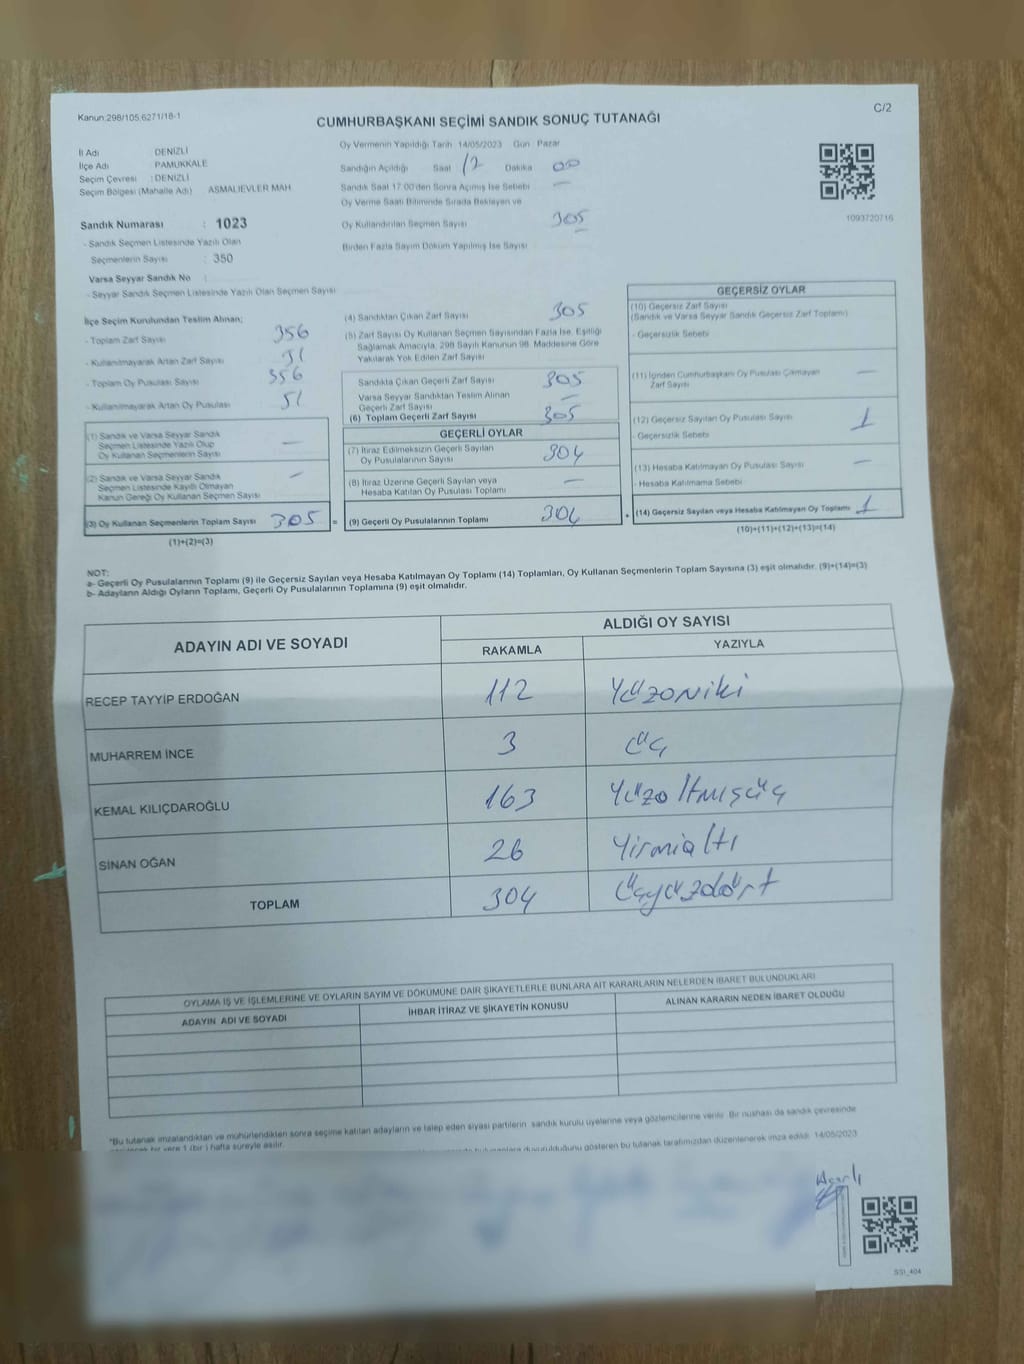 Kanun:298/105,6271/18-1
C/2
CUMHURBAŞKANI SEÇİMİ SANDIK SONUÇ TUTANAĞI
İl Adı DENİZLİ
İlçe Adı PAMUKKALE
Seçim Çevresi : DENİZLİ
Seçim Bölgesi (Mahalle Adı) ASMALIEVLER MAH
Oy Vermenin Yapıldığı Tarih 14/05/2023 Gün Pazar
Sandığın Açıldığı Saat 17 Dakika 00
Sandık Saat 17:00'den Sonra Açılmış İse Sebebi —
Oy Verme Saati Bitiminde Sırada Bekleyen ve
Oy Kullandırılan Seçmen Sayısı 305
Birden Fazla Sayım Döküm Yapılmış İse Sayısı
1093720716
Sandık Numarası : 1023
- Sandık Seçmen Listesinde Yazılı Olan
Seçmenlerin Sayısı : 350
Varsa Seyyar Sandık No :
- Seyyar Sandık Seçmen Listesinde Yazılı Olan Seçmen Sayısı
İlçe Seçim Kurulundan Teslim Alınan;
- Toplam Zarf Sayısı 356
- Kullanılmayarak Artan Zarf Sayısı 51
- Toplam Oy Pusulası Sayısı 356
- Kullanılmayarak Artan Oy Pusulası 51
(1) Sandık ve Varsa Seyyar Sandık
Seçmen Listesinde Yazılı Olup
Oy Kullanan Seçmenlerin Sayısı —
(2) Sandık ve Varsa Seyyar Sandık
Seçmen Listesinde Kayıtlı Olmayan
Kanun Gereği Oy Kullanan Seçmen Sayısı —
(3) Oy Kullanan Seçmenlerin Toplam Sayısı 305 =
(1)+(2)=(3)
(4) Sandıktan Çıkan Zarf Sayısı 305
(5) Zarf Sayısı Oy Kullanan Seçmen Sayısından Fazla İse, Eşitliği
Sağlamak Amacıyla, 298 Sayılı Kanunun 98. Maddesine Göre
Yakılarak Yok Edilen Zarf Sayısı
Sandıkta Çıkan Geçerli Zarf Sayısı 305
Varsa Seyyar Sandıktan Teslim Alınan
Geçerli Zarf Sayısı —
(6) Toplam Geçerli Zarf Sayısı 305
GEÇERLİ OYLAR
(7) İtiraz Edilmeksizin Geçerli Sayılan
Oy Pusulalarının Sayısı 304
(8) İtiraz Üzerine Geçerli Sayılan veya
Hesaba Katılan Oy Pusulası Toplamı —
(9) Geçerli Oy Pusulalarının Toplamı 304 +
GEÇERSİZ OYLAR
(10) Geçersiz Zarf Sayısı
(Sandık ve Varsa Seyyar Sandık Geçersiz Zarf Toplamı)
- Geçersizlik Sebebi
(11) İçinden Cumhurbaşkanı Oy Pusulası Çıkmayan
Zarf Sayısı —
(12) Geçersiz Sayılan Oy Pusulası Sayısı 1
- Geçersizlik Sebebi
(13) Hesaba Katılmayan Oy Pusulası Sayısı —
- Hesaba Katılmama Sebebi
(14) Geçersiz Sayılan veya Hesaba Katılmayan Oy Toplamı 1
(10)+(11)+(12)+(13)=(14)
NOT:
a- Geçerli Oy Pusulalarının Toplamı (9) ile Geçersiz Sayılan veya Hesaba Katılmayan Oy Toplamı (14) Toplamları, Oy Kullanan Seçmenlerin Toplam Sayısına (3) eşit olmalıdır. (9)+(14)=(3)
b- Adayların Aldığı Oyların Toplamı, Geçerli Oy Pusulalarının Toplamına (9) eşit olmalıdır.
ADAYIN ADI VE SOYADI
ALDIĞI OY SAYISI
RAKAMLA YAZIYLA
RECEP TAYYİP ERDOĞAN 112 Yüzoniki
MUHARREM İNCE 3 Üç
KEMAL KILIÇDAROĞLU 163 Yüzoltmışüç
SİNAN OĞAN 26 Yirmialtı
TOPLAM 304 Üçyüzdört
OYLAMA İŞ VE İŞLEMLERİNE VE OYLARIN SAYIM VE DÖKÜMÜNE DAİR ŞİKAYETLERLE BUNLARA AİT KARARLARIN NELERDEN İBARET BULUNDUKLARI
ADAYIN ADI VE SOYADI
İHBAR İTİRAZ VE ŞİKAYETİN KONUSU
ALINAN KARARIN NEDEN İBARET OLDUĞU
*Bu tutanak imzalandıktan ve mühürlendikten sonra seçime katılan adayların ve talep eden siyasi partilerin sandık kurulu üyelerine veya gözlemcilerine verilir. Bir nüshası da sandık çevresinde
bir yere 1 (bir) hafta süreyle asılır.
duyurulduğunu gösteren bu tutanak tarafımızdan düzenlenerek imza edildi. 14/05/2023
SSI_404